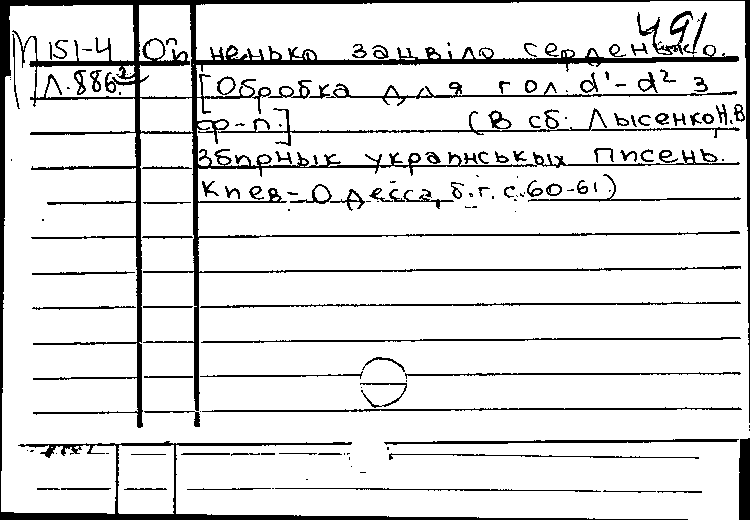 491
М 151-4 Ой ненько зацвіло серденько.
Л.886² [Обробка для гол. d¹-d² з
ф-п.] (В сб: Лысенко, Н.В
Збирнык украинськых писень.
Киев-Одесса, б.г. с.60-61)